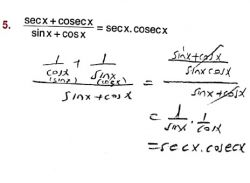 5. (secx + cosecx)/(sinx + cosx) = secx.cosecx
(1/cosx (sinx) + 1/sinx (cosx))/(sinx + cosx) = ((sinx + cosx)/(sinx cosx))/(sinx + cosx)
= 1/sinx . 1/cosx
= secx.cosecx